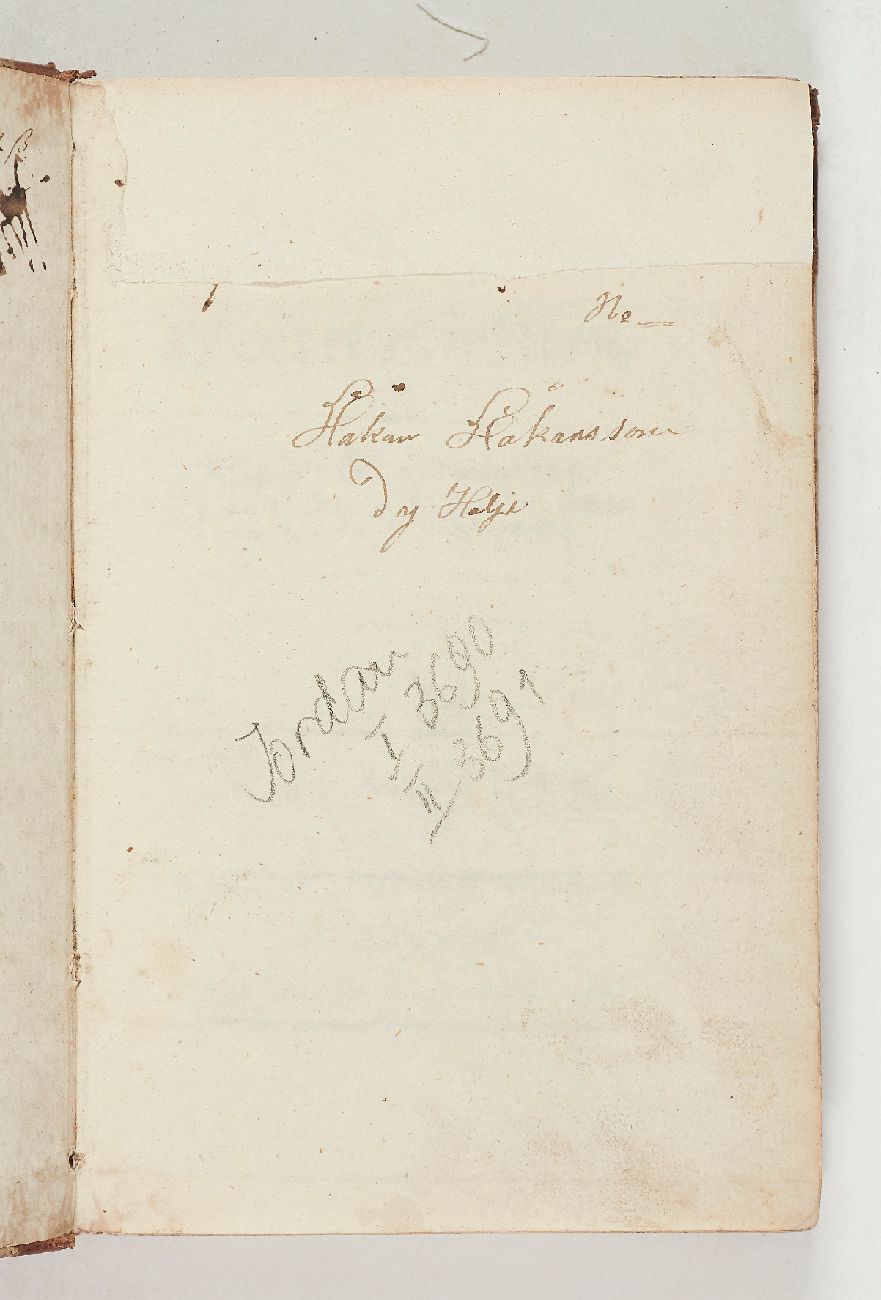 No
Håkan Håkansson
Dy Helje
Jordan
I 3690
II 3691